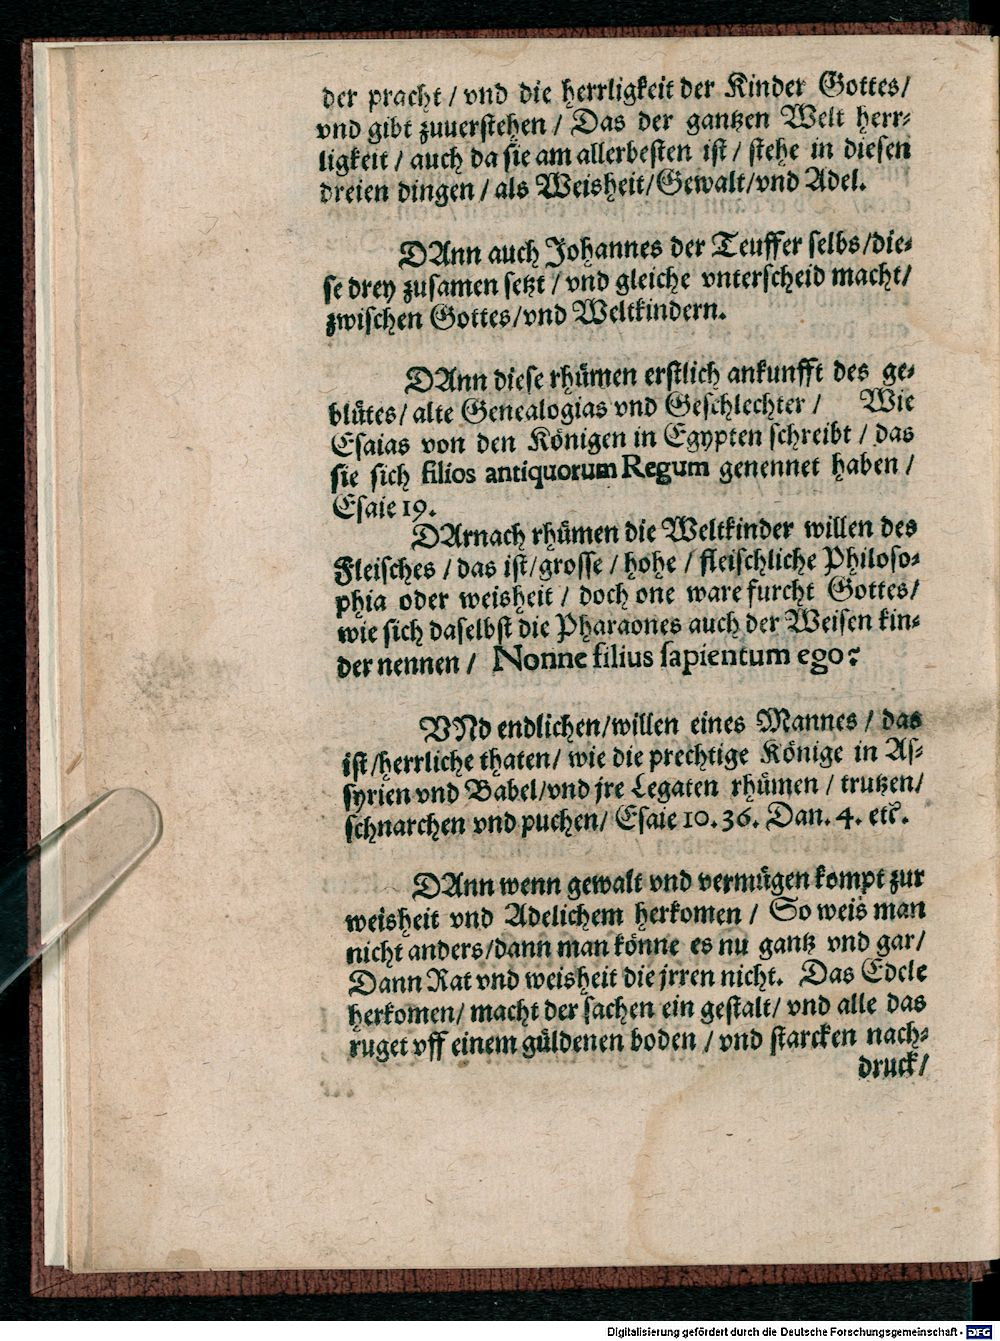 der pracht / vnd die herrligkeit der Kinder Gottes /
vnd gibt zuuerstehen / Das der gantzen Welt herr⸗
ligkeit / auch da sie am allerbesten ist / stehe in diesen
dreien dingen / als Weisheit / Gewalt / vnd Adel.
DAnn auch Johannes der Teuffer selbs / die⸗
se drey zusamen setzt / vnd gleiche vnterscheid macht /
zwischen Gottes / vnd Weltkindern.
DAnn diese rhuͤmen erstlich ankunfft des ge⸗
bluͤtes / alte Genealogias vnd Geschlechter / Wie
Esaias von den Koͤnigen in Egypten schreibt / das
sie sich filios antiquorum Regum genennet haben /
Esaie 19.
DArnach rhuͤmen die Weltkinder willen des
Fleisches / das ist / grosse / hohe / fleischliche Philoso⸗
phia oder weisheit / doch one ware furcht Gottes /
wie sich daselbst die Pharaones auch der Weisen kin⸗
der nennen / Nonne filius sapientum ego?
VNd endlichen / willen eines Mannes / das
ist / herrliche thaten / wie die prechtige Koͤnige in As⸗
syrien vnd Babel / vnd jre Legaten rhuͤmen / trutzen /
schnarchen vnd puchen / Esaie 10. 36. Dan. 4. etc.
DAnn wenn gewalt vnd vermuͤgen kompt zur
weisheit vnd Adelichem herkomen / So weis man
nicht anders / dann man koͤnne es nu gantz vnd gar /
Dann Rat vnd weisheit die jrren nicht. Das Edele
herkomen / macht der sachen ein gestalt / vnd alle das
ruget vff einem guͤldenen boden / vnd starcken nach⸗
druck /
Digitalisierung gefördert durch die Deutsche Forschungsgemeinschaft - DFG